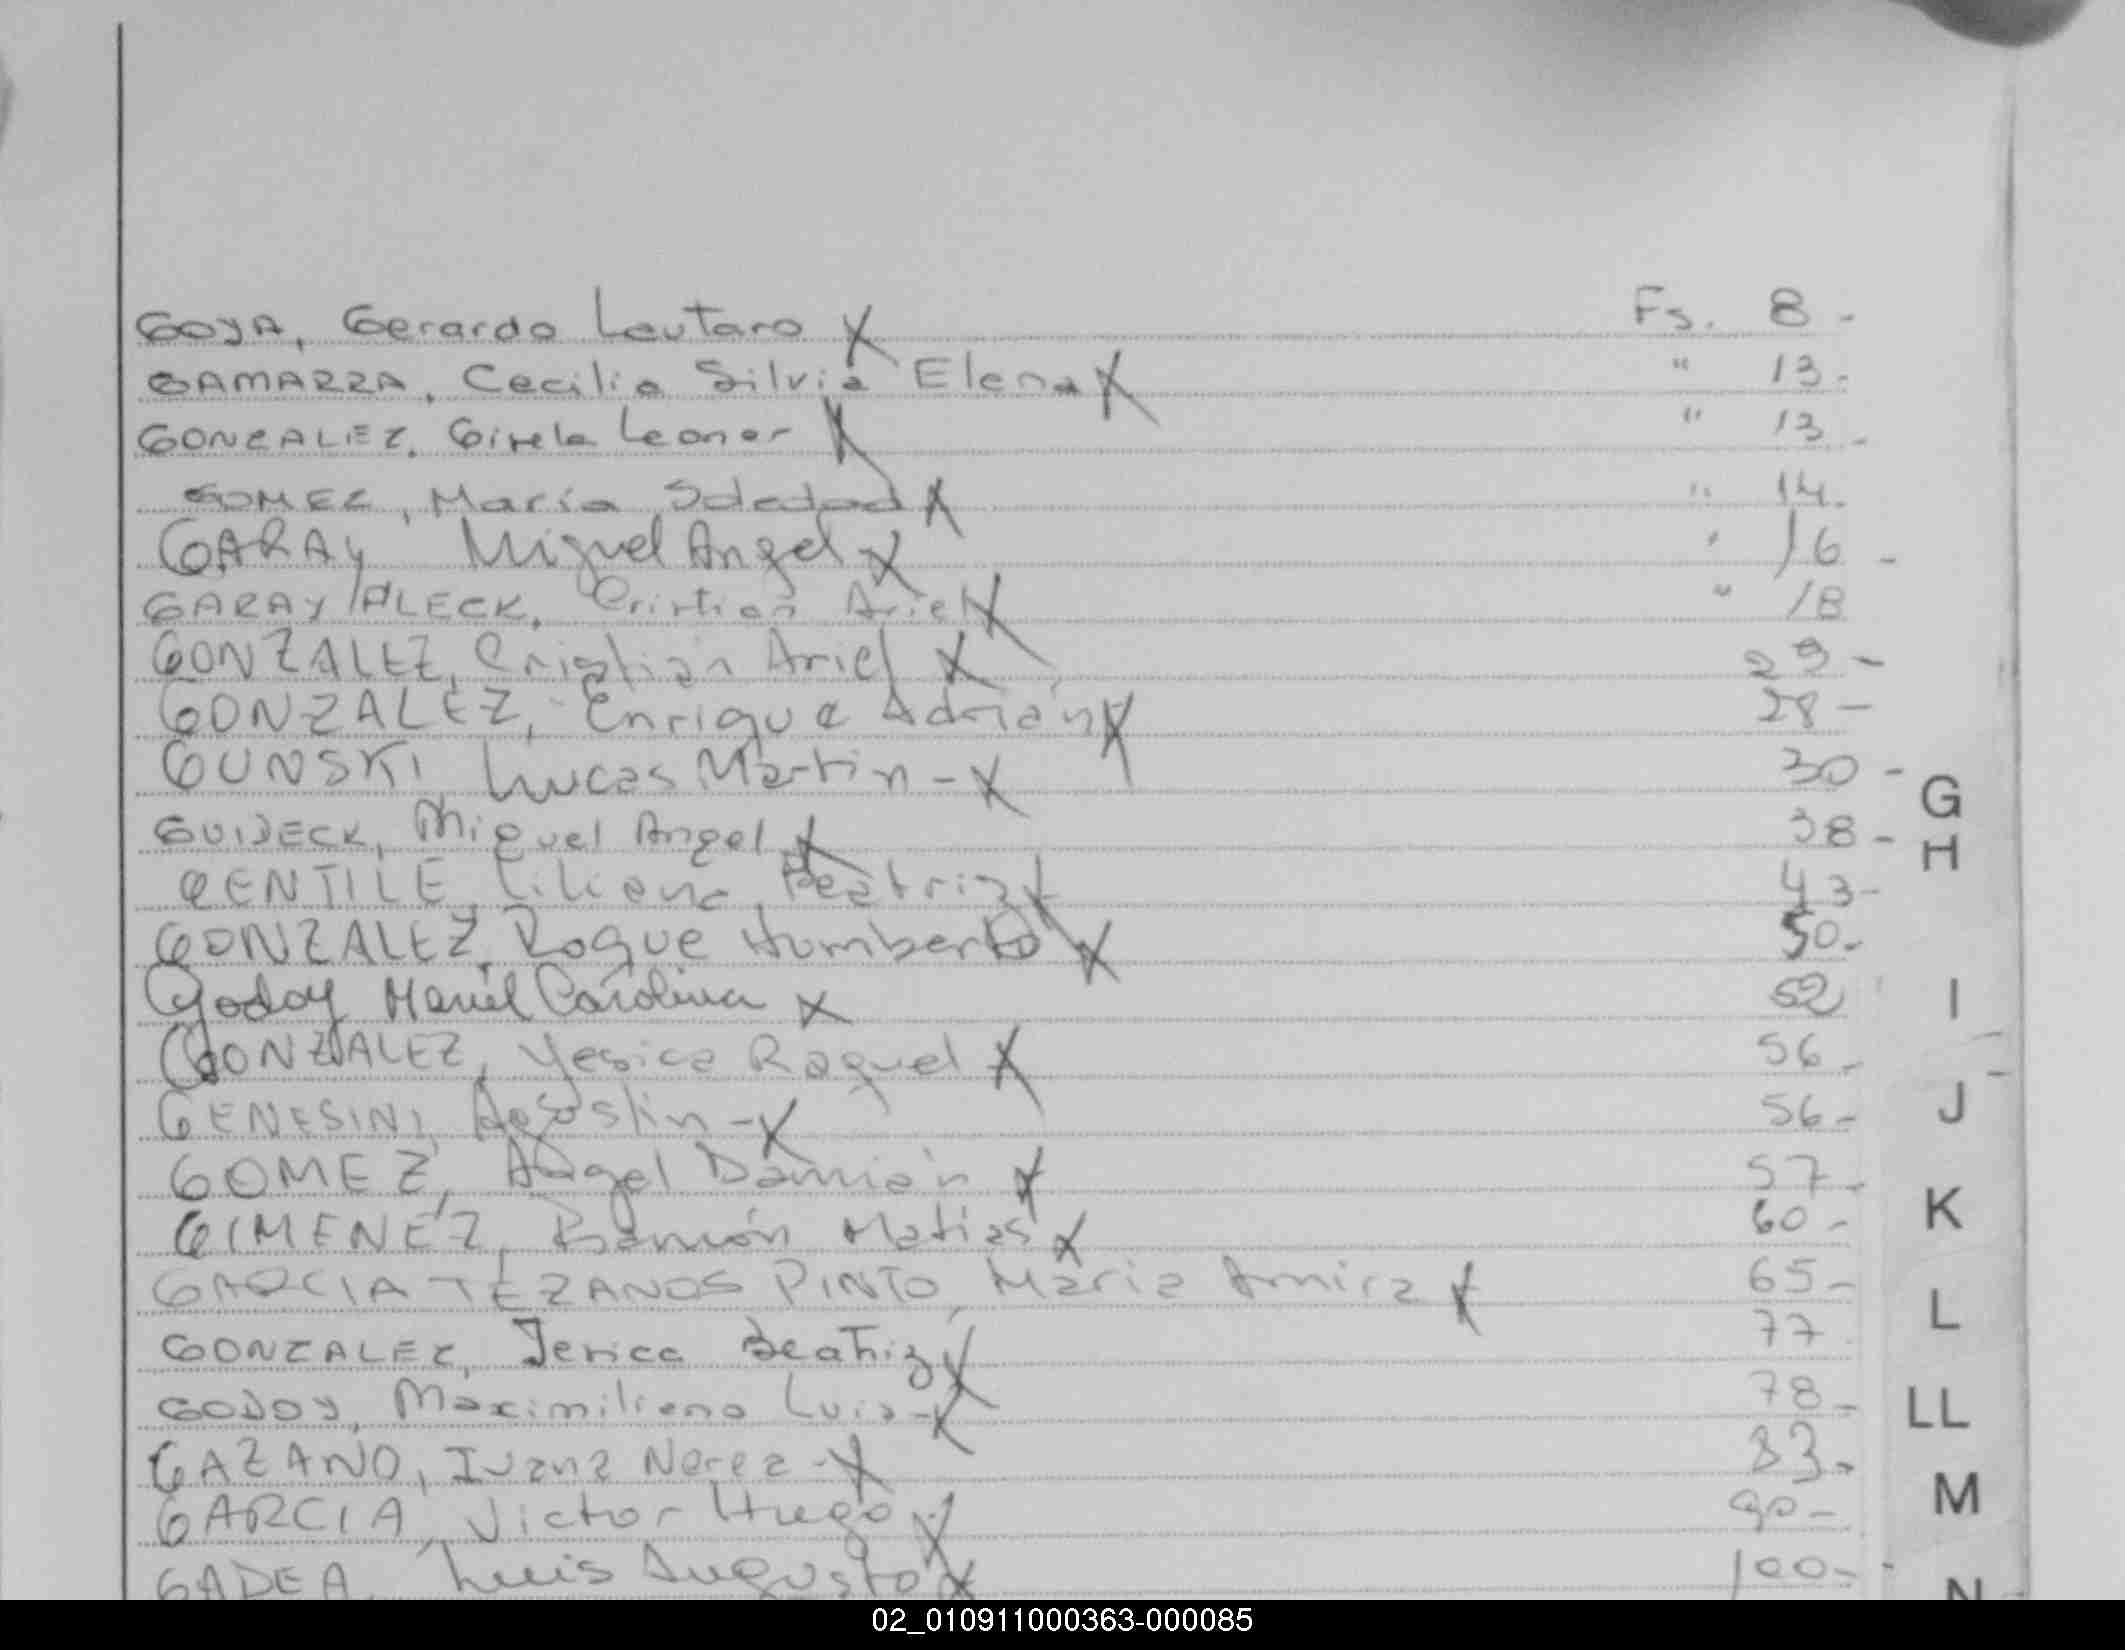 GOYA, Gerardo Lautaro X Fs. 8 -
GAMARRA, Cecilia Silvia Elena X " 13 -
GONZALEZ, Gisela Leonor X " 13 -
GOMEZ, María Soledad X " 14.
GARAY Miguel Angel X " 16 -
GARAY ALECK, Cristian Ariel X " 18
GONZALEZ, Cristian Ariel X 29 -
GONZALEZ, Enrique Adrián X 28 -
GUNSKI Lucas Martin - X 30 -
GUIDECK, Miguel Angel X 38 -
GENTILE, Liliana Beatriz X 43 -
GONZALEZ, Roque Humberto X 50 -
Godoy Mariel Carolina X 52
GONZALEZ, Yesica Raquel X 56 -
GENESINI, Agostin - X 56 -
GOMEZ, Angel Damián X 57 -
GIMENEZ, Ramón Matias X 60 -
GARCIA TEZANOS PINTO, Maria Amira X 65 -
GONZALEZ, Jerica Beatriz X 77
GODOY, Maximiliano Luis - X 78 -
GAZANO, Ivana Nerea - X 83 -
GARCIA, Victor Hugo X 90 -
GADEA, Luis Augusto X 100 -
G
H
I
J
K
L
LL
M
N
02_010911000363-000085